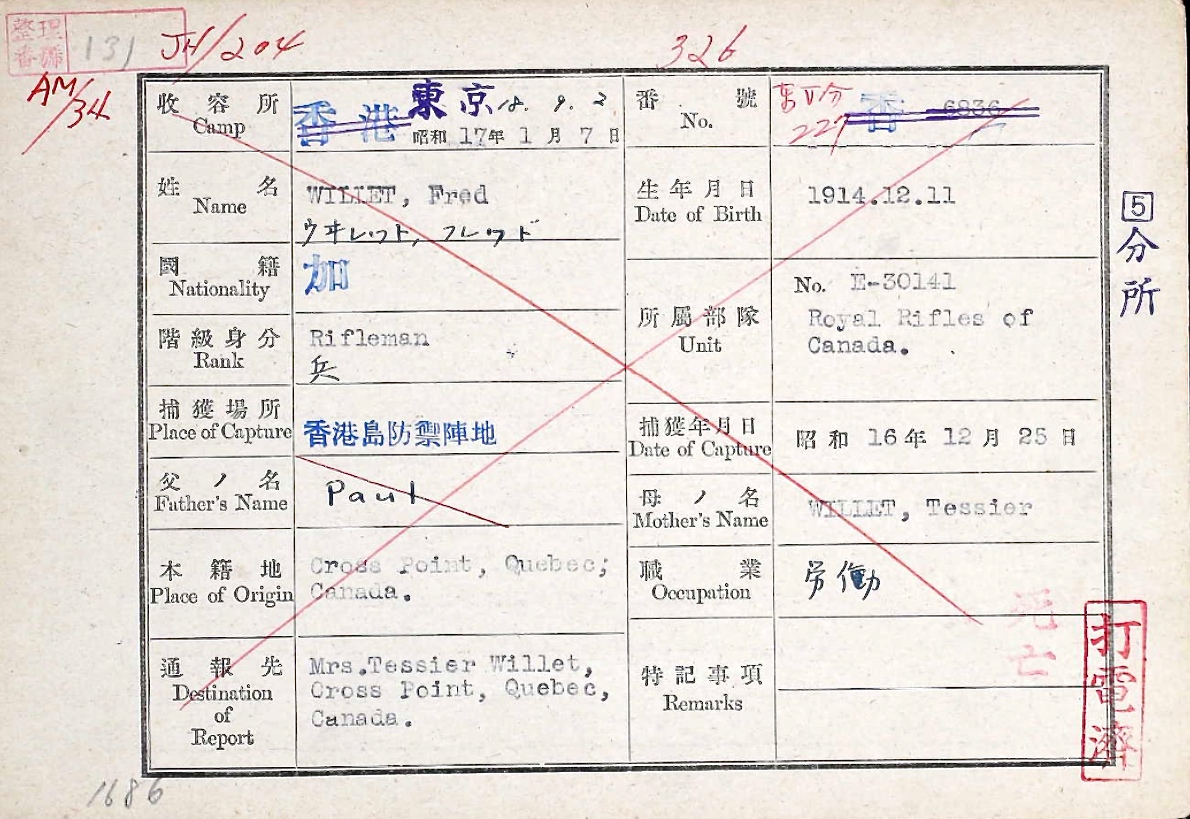 整理番號 131
JH/204
326
AM/34
收容所
Camp
香港 東京 18. 9. 2
昭和 17年 1月 7日
番號
No.
227
香 6836
姓名
Name
WILLET, Fred
ウヰレット, フレッド
生年月日
Date of Birth
1914.12.11
5
分所
國籍
Nationality
加
所屬部隊
Unit
No. E-30141
Royal Rifles of
Canada.
階級身分
Rank
Rifleman
兵
捕獲場所
Place of Capture
香港島防禦陣地
捕獲年月日
Date of Capture
昭和 16年 12月 25日
父ノ名
Father's Name
Paul
母ノ名
Mother's Name
WILLET, Tessier
本籍地
Place of Origin
Cross Point, Quebec,
Canada.
職業
Occupation
労働
通報先
Destination
of
Report
Mrs.Tessier Willet,
Cross Point, Quebec,
Canada.
特記事項
Remarks
死亡
打電濟
1686